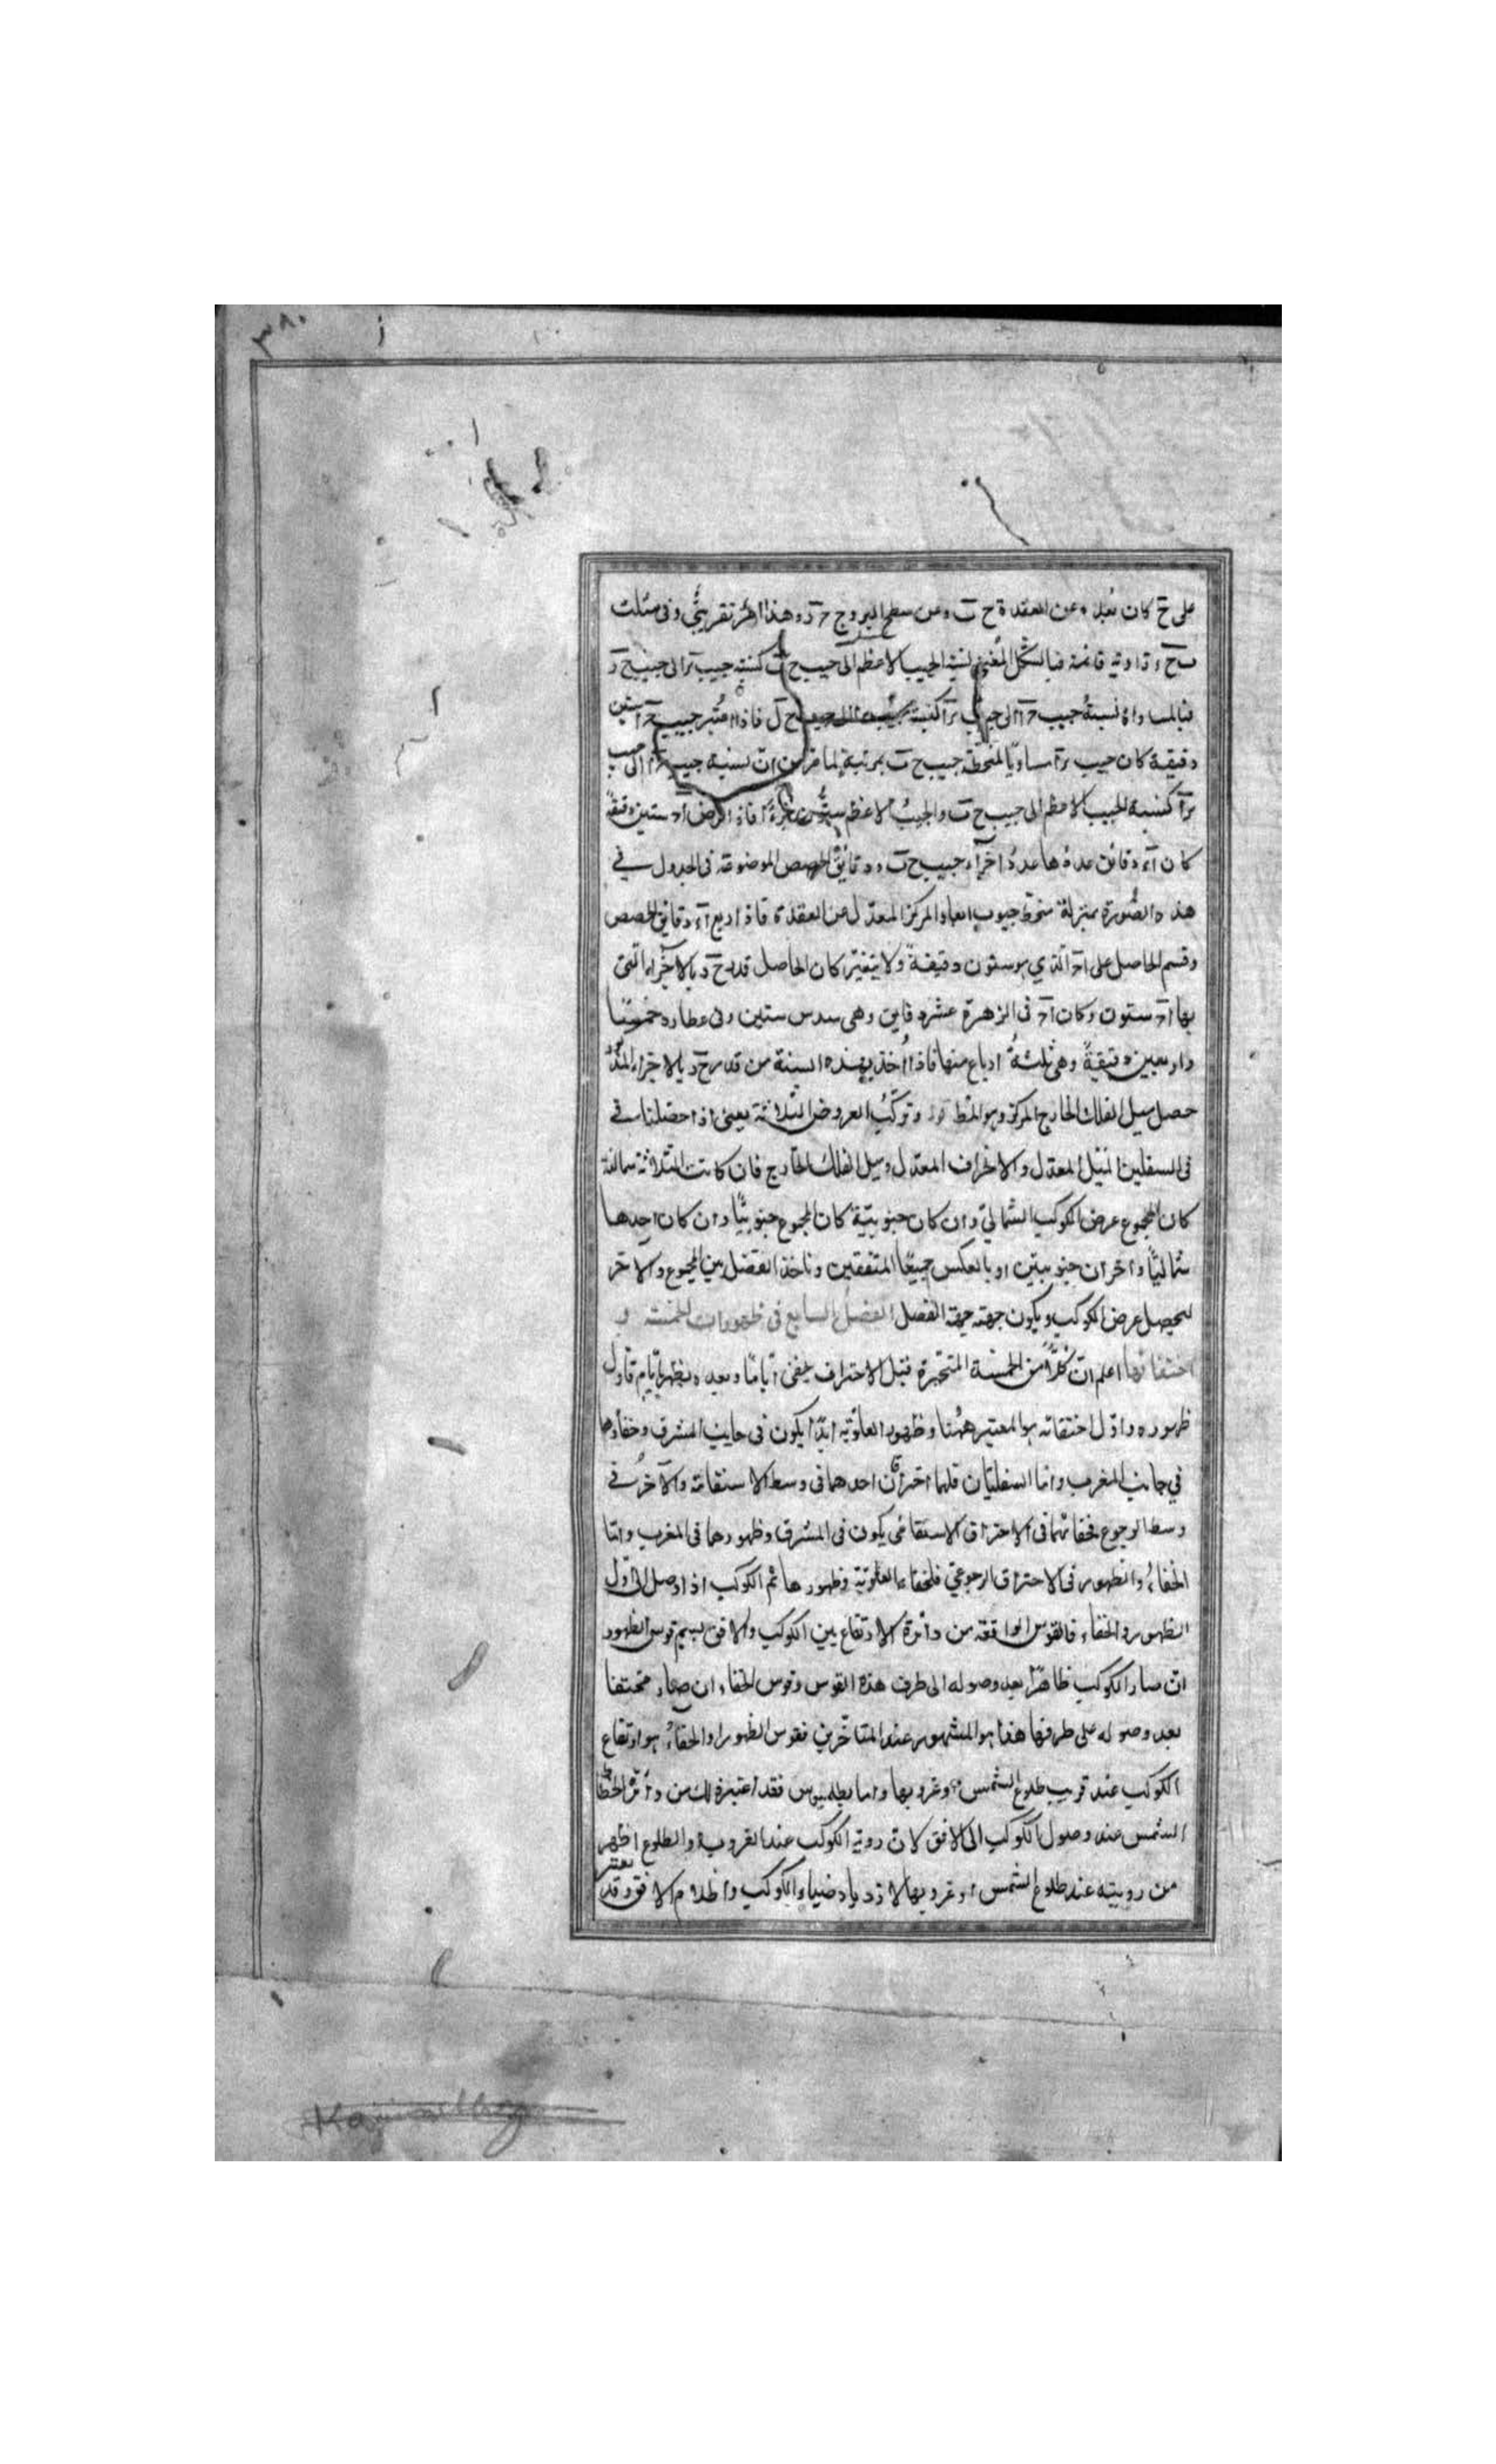 ٣٨٠
على ح كان بعده عن العقدة ح ب وعن سطح البروج ح د وهذا امر تقريبي وفى مثلث
زاوية قائمة فبالشكل المغنى نسبة الجيب الاعظم الى جيب ح ب كنسبة جيب الى جيب ح د
فبالمساواة نسبة جيب كنسبة فاذا اعتبر جيب ستين
دقيقة كان جيب مساويا لمنحط جيب ح ب بمرتبة لما مر من ان نسبة جيب الى جيب
كنسبة الجيب الاعظم الى جيب ح ب والجيب الاعظم ستون جزءا فاذا فرض ستين دقيقة
كان دقائق عدة ها عدد اجزاء جيب ح ب ودقائق الحصص الموضوعة فى الجدول فى
هذه الصورة بمنزلة منحط جيوب ابعاد المركز المعدل عن العقدة فاذا دقائق الحصص
وقسم الحاصل على الذي هو ستون دقيقة ولا يتغير كان الحاصل قدر ح د بالاجزاء التى
بها ستون وكان فى الزهرة عشر دقايق وهى سدس ستين وفى عطارد خمسة
واربعين دقيقة وهى ثلثة ارباع منها فاذا اخذ بهذه النسبة من قدر ح د بالاجزاء
حصل ميل الفلك الخارج المركز وهو المط وتركب العروض الثلاثة يعنى اذا حصلنا فى
فى السفلين الميل المعدل والانحراف المعدل وميل الفلك الخارج فان كانت الثلاثة شمالية
كان المجموع عرض الكوكب الشمالي وان كان جنوبية كان المجموع جنوبيا وان كان احدها
شماليا واخران جنوبيتين او بالعكس جميعا المتفقين وناخذ الفضل بين المجموع والاخر
ليحصل عرض الكوكب ويكون جهته جهة الفضل الفصل السابع فى ظهورات الخمسة و
اختفائها اعلم ان كلا من الخمسة المتحيرة قبل الاحتراق يخفى اياما وبعده يظهر بايام فاول
ظهوره واول اختفائه هو المعتبر ههنا وظهور العلوية ابدا يكون فى جانب المشرق وخفاؤها
في جانب المغرب واما السفليان فلهما احتراقان احدهما فى وسط الاستقامة والاخر فى
وسط الرجوع فخفائهما فى الاحتراق الاستقامى يكون فى المشرق وظهورهما فى المغرب واما
الخفاء والظهور فى الاحتراق الرجوعي فلخفاء العلوية وظهورها ثم الكوكب اذا وصل الى اول
الظهور والخفاء فالقوس الواقعة من دائرة الارتفاع بين الكوكب والافق يسمى قوس الظهور
ان صار الكوكب ظاهرا بعد وصوله الى طرف هذه القوس وقوس الخفاء ان صار مختفيا
بعد وصوله على طرفها هذا هو المشهور عند المتاخرين فقوس الظهور او الخفاء هو ارتفاع
الكوكب عند قريب طلوع الشمس او غروبها واما بطلميوس فقد اعتبر ذلك من دائرة انحطاط
الشمس عند وصول الكوكب الى الافق لان روية الكوكب عند الغروب او الطلوع اظهر
من رويته عند طلوع الشمس او غروبها لازدياد ضياء الكوكب واظلام الافق وقد يعتبر